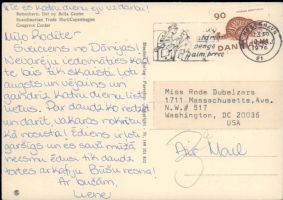 nie es katru dienu eju uz darbu!
København. Det ny Bella Center
Scandinavian Trade Mart/Copenhagen
Congress Center
Milo Rodite!
Sveiciens no Dānijas!
Nevarēju iedomāties kad
te, būs tik skaisti. Loti
augsts un vējains un
gandrīz katru dienu list
lietus. Par daudz ko redzēt
un darīt, vakaros nokritu
kā nosista! Ēdiens ir loti
garšīgs un es savā mūžā
nesmu ēdusi tik daudz
tortes ar kafiju. Būšu resna!
Ar bučām,
90
DANMARK
Miss Rode Dubelzars
1711 Massachusetts,Ave.
N.W.# 517
Washington, DC 20036
USA
Air Mail